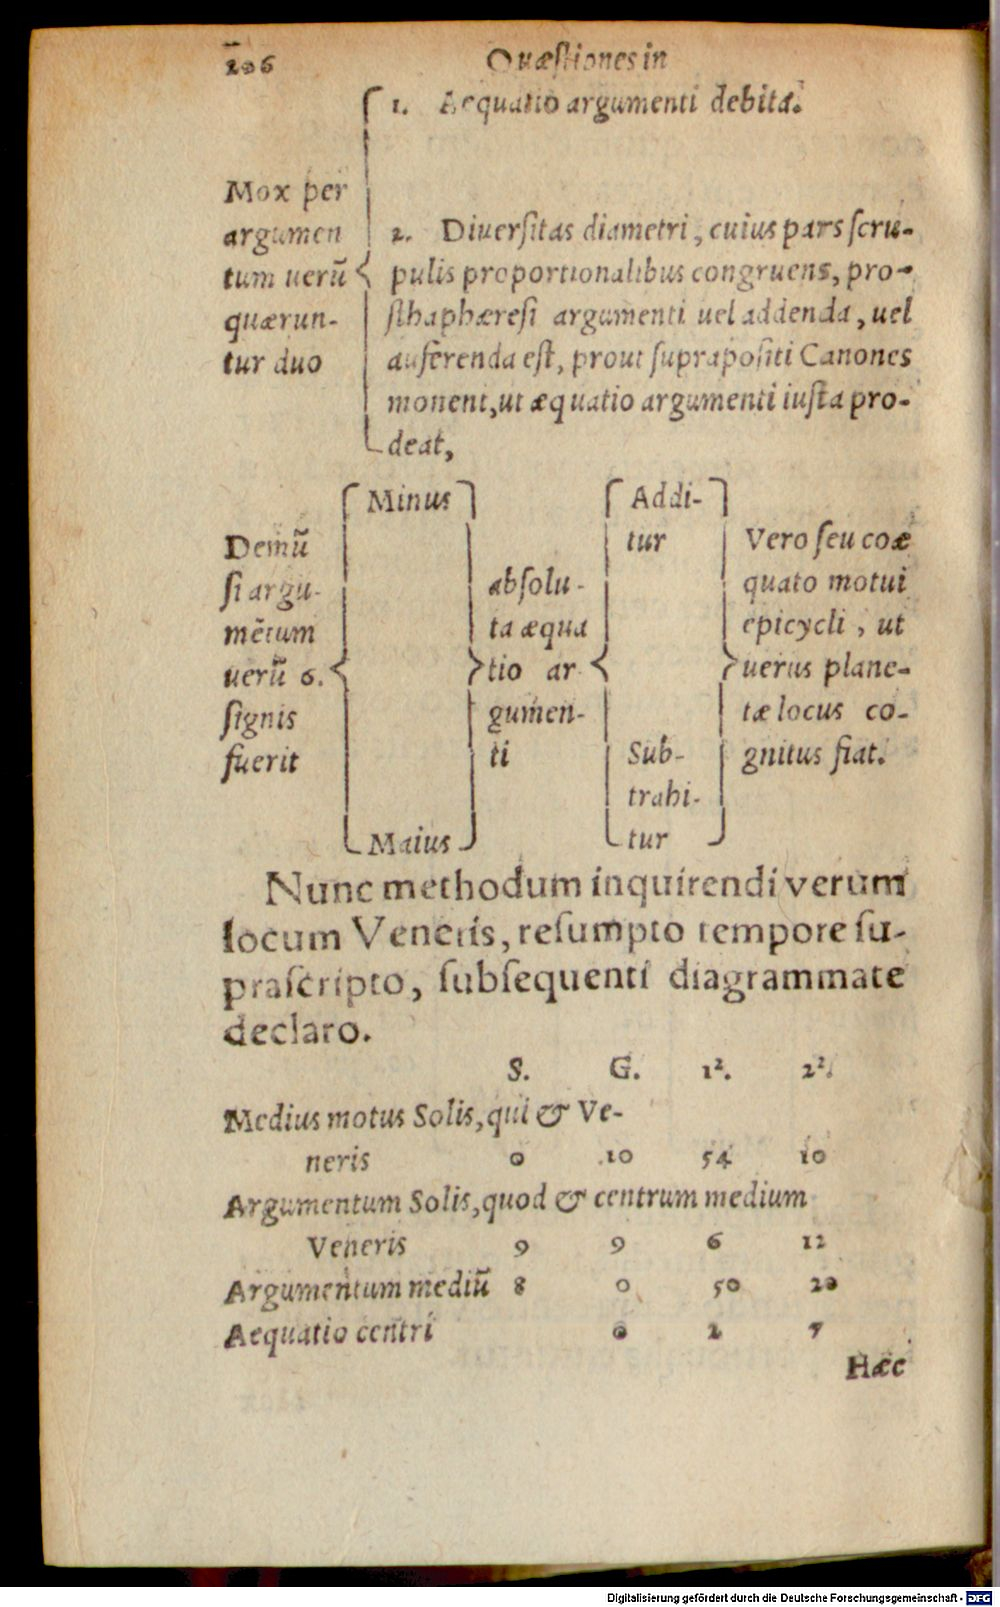 206 Quæſtiones in
1. Aequatio argumenti debita.
Mox per
argumen
tum uerū
quærun-
tur duo
2. Diuerſitas diametri, cuius pars ſcru-
pulis proportionalibus congruens, pro-
ſthaphæreſi argumenti uel addenda, uel
auferenda eſt, prout ſuprapoſiti Canones
monent, ut æquatio argumenti iuſta pro-
deat,
Demū
ſi argu-
mētum
uerū 6.
ſignis
fuerit
Minus
Maius
abſolu-
ta æqua
tio ar
gumen-
ti
Addi-
tur
Sub-
trahi-
tur
Vero ſeu coæ
quato motui
epicycli, ut
uerus plane-
tæ locus co-
gnitus fiat.
Nunc methodum inquirendi verum
locum Veneris, reſumpto tempore ſu-
praſcripto, ſubſequenti diagrammate
declaro.
S. G. 1². 2².
Medius motus Solis, qui & Ve-
neris 0 10 54 10
Argumentum Solis, quod & centrum medium
Veneris 9 9 6 12
Argumentum mediū 8 0 50 20
Aequatio centri 0 2 7
Hæc
Digitalisierung gefördert durch die Deutsche Forschungsgemeinschaft - DFG